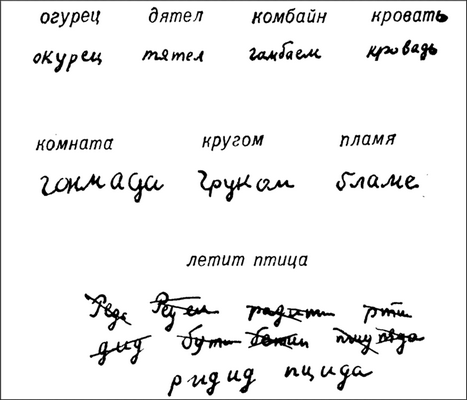 огурец дятел комбайн кровать
окурец тятел гамбаем кровадь
комната кругом пламя
гонмада груком бламе
летит птица
Реда радити рти
дид бути
ридид пцида